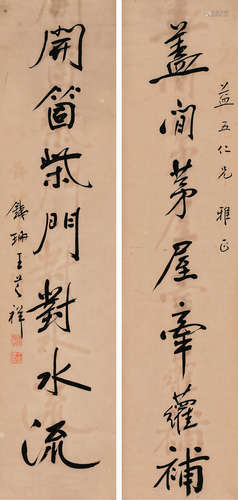 益五仁兄 雅正
蓋間茅屋牽蘿補
開箇柴門對水流
鐵珊王芝祥